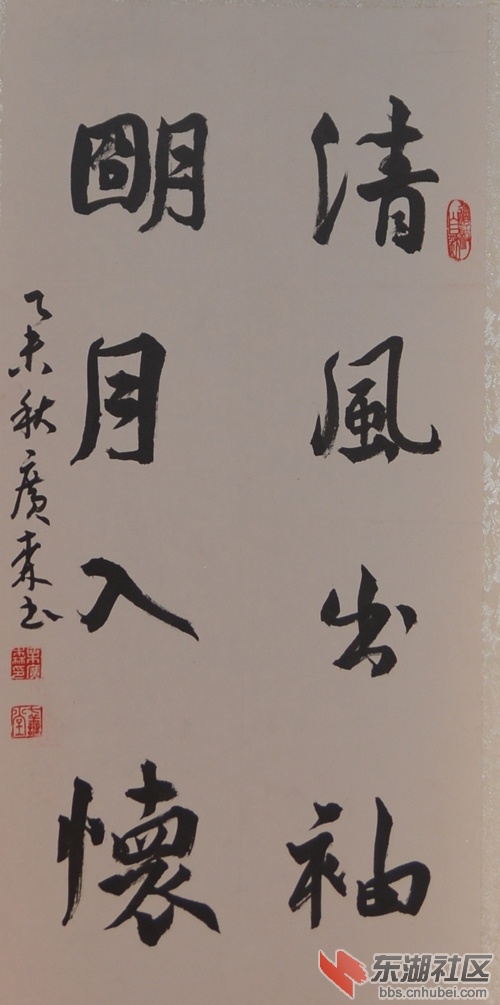 清風出袖
朙月入懷
乙未秋廣森书
东湖社区
bbs.cnhubei.com